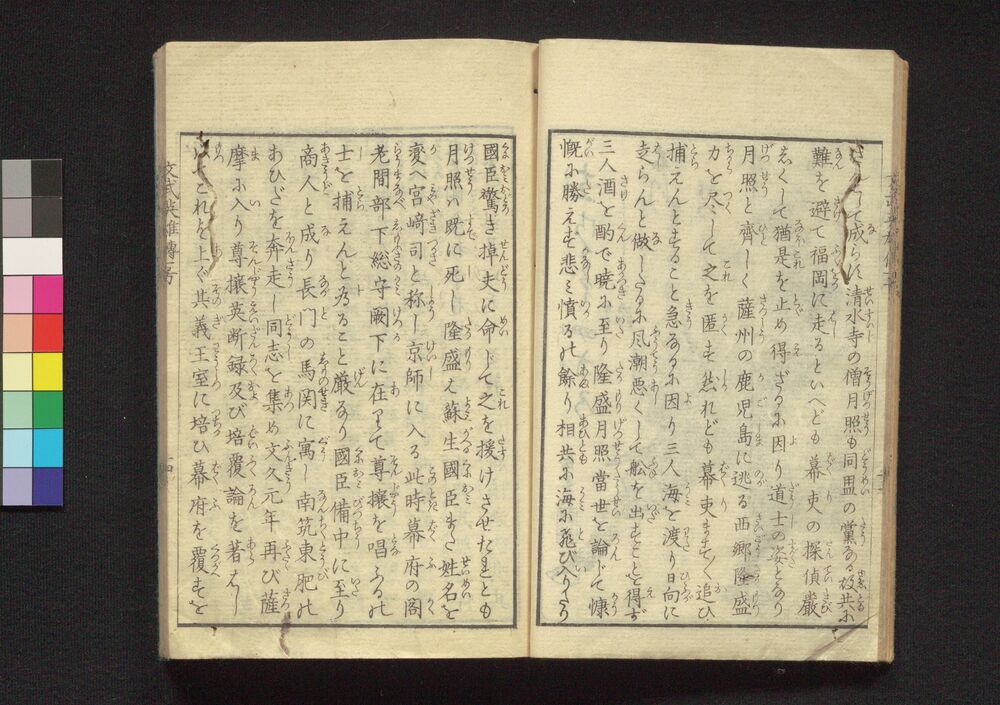 して成らに清水寺の僧月照も同盟の黨なる故共に
難を避て福岡に走るといへども幕吏の探偵嚴
しくして猶是を止め得ざるに因り道士の姿となり
月照と齊しく薩州の鹿児島に逃る西郷隆盛
力を尽して之を匿も然れども幕吏ますます追ひ
捕えんとすること急なるに因り三人海を渡り日向に
走らんと做したるに風潮悪くして舩を出すことを得ず
三人酒を酌で暁に至り隆盛月照當世を論じて慷
慨に勝えず悲ミ憤るの餘り相共に海に飛び入りたり
國臣驚き棹夫に命じて之を援けさせたれども
月照ハ既に死し隆盛ハ蘇生國臣また姓名を
変へ宮﨑司と称し京師に入る此時幕府の閣
老間部下総守闕下に在りて尊攘を唱ふるの
士を捕えんと為ること厳なり國臣備中に至り
商人と成り長門の馬関に寓し南筑東肥の
あひだを奔走し同志を集め文久元年再び薩
摩に入り尊攘英断録及び培覆論を著はし
てこれを上ぐ其義王室に培ひ幕府を覆すを
文武英雄傳